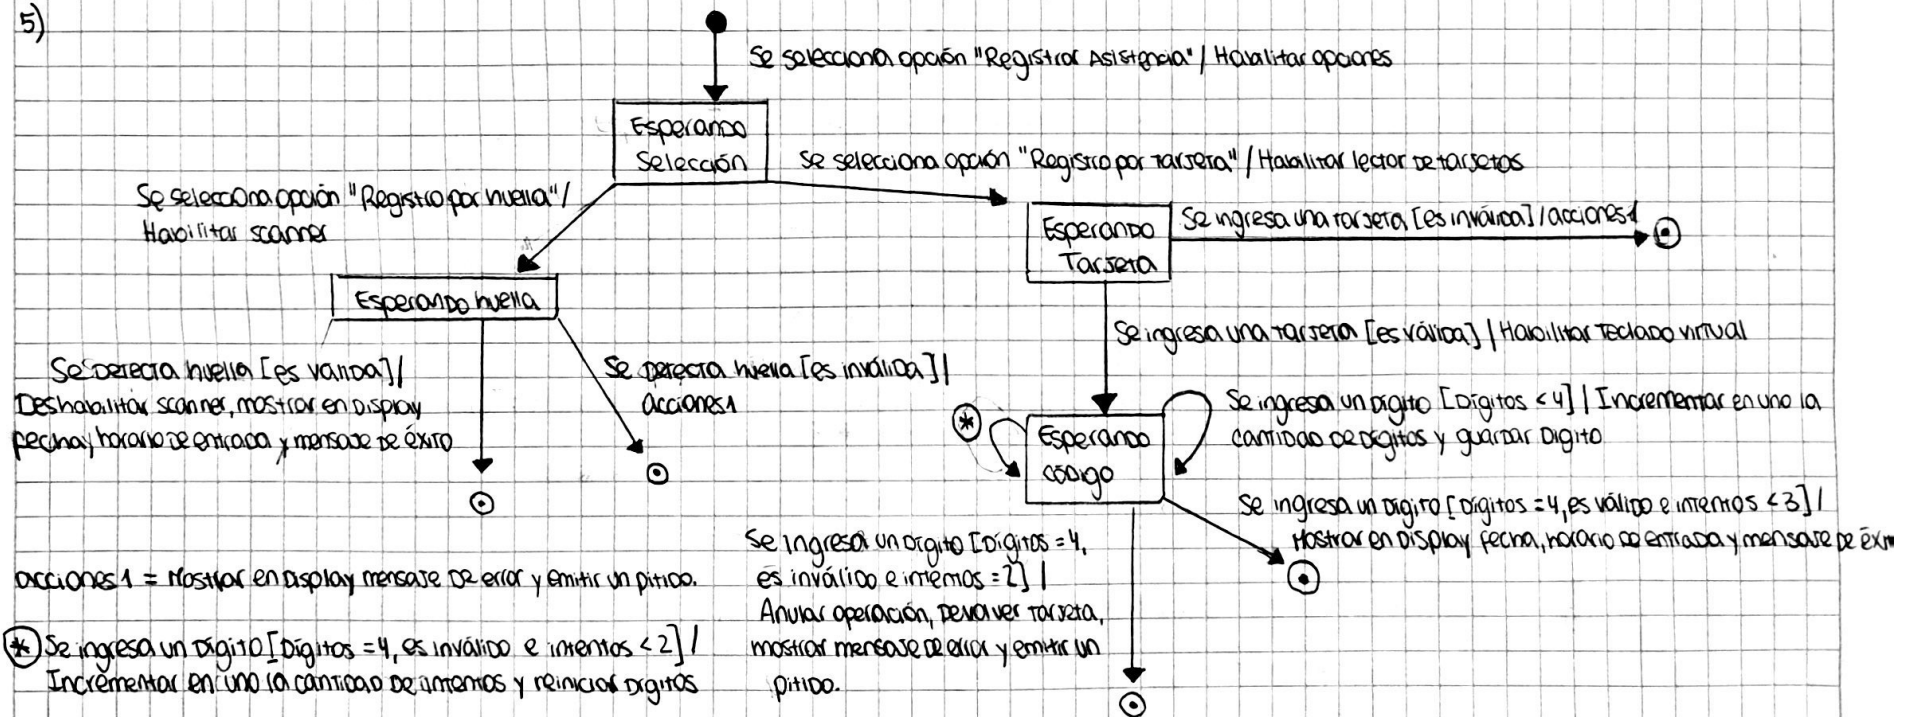 5)
Se selecciona opción "Registrar Asistencia" / Habilitar opciones
Esperando
Selección
Se selecciona opción "Registro por Tarjeta" / Habilitar lector de tarjetas
Se selecciona opción "Registro por huella" /
Habilitar scanner
Esperando
Tarjeta
Se ingresa una tarjeta [es inválida] / acciones1
Esperando huella
Se ingresa una tarjeta [es válida] / Habilitar Teclado virtual
Se detecta huella [es válida] /
Deshabilitar scanner, mostrar en Display
fecha y horario de entrada y mensaje de éxito
Se detecta huella [es inválida] /
acciones1
*
Esperando
código
Se ingresa un dígito [Dígitos < 4] / Incrementar en uno la
cantidad de dígitos y guardar Dígito
Se ingresa un dígito [Dígitos = 4, es válido e intentos < 3] /
Mostrar en Display fecha, horario de entrada y mensaje de éxito
Se ingresa un dígito [Dígitos = 4,
es inválido e intentos = 2] /
Anular operación, Devolver tarjeta,
mostrar mensaje de error y emitir un
pitido.
acciones1 = Mostrar en display mensaje de error y emitir un pitido.
* Se ingresa un Dígito [Dígitos = 4, es inválido e intentos < 2] /
Incrementar en uno la cantidad de intentos y reiniciar Dígitos